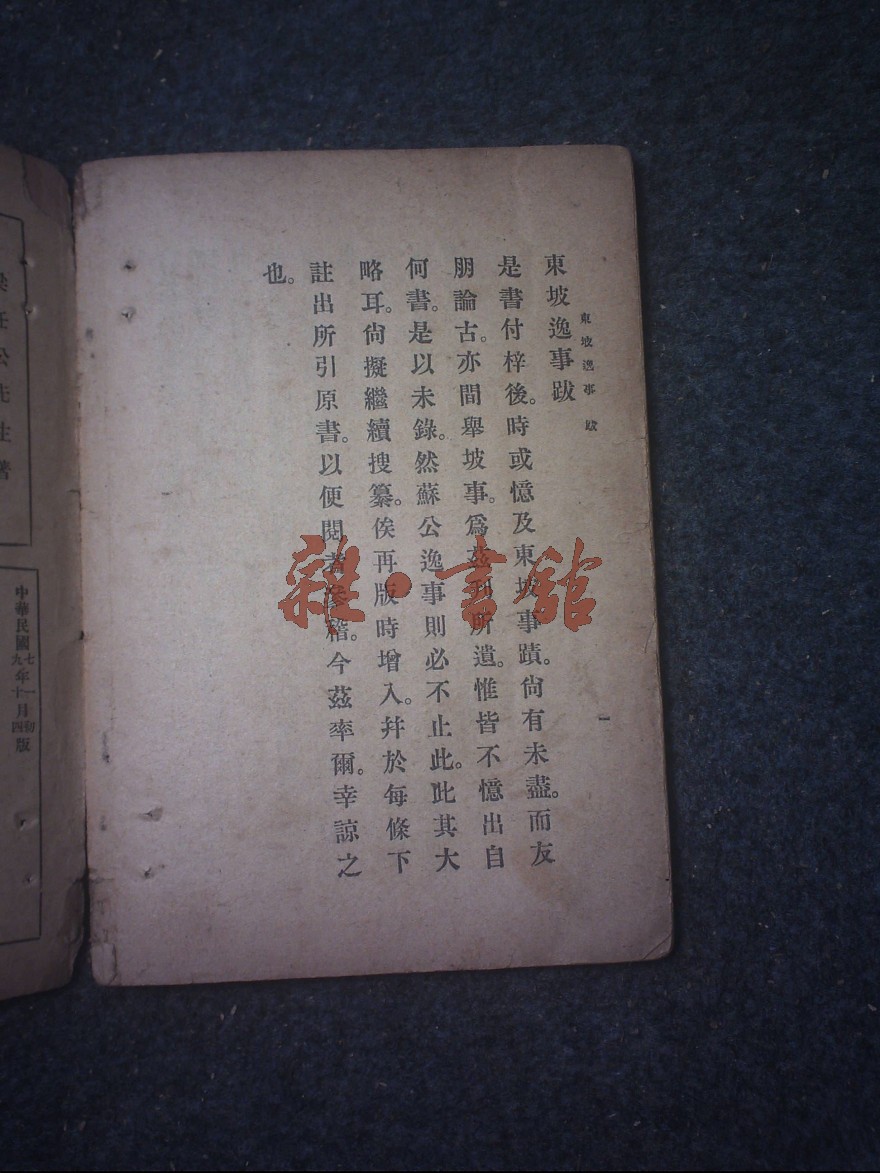 東坡逸事 跋
東坡逸事跋
是書付梓後。時或憶及東坡事蹟。尙有未盡。而友
朋論古。亦間舉坡事。爲茲刊所遺。惟皆不憶出自
何書。是以未錄。然蘇公逸事則必不止此。此其大
略耳。尙擬繼續搜纂。俟再版時增入。幷於每條下
註出所引原書。以便閱者參稽。今茲率爾。幸諒之
也。
一
雜·書舘
任公先生著
中華民國七年一月初版
九年十一月四版